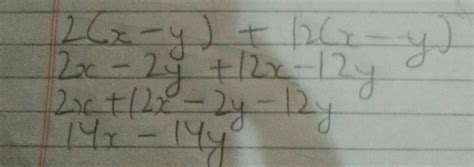 2(x - y) + 12(x - y)
2x - 2y + 12x - 12y
2x + 12x - 2y - 12y
14x - 14y